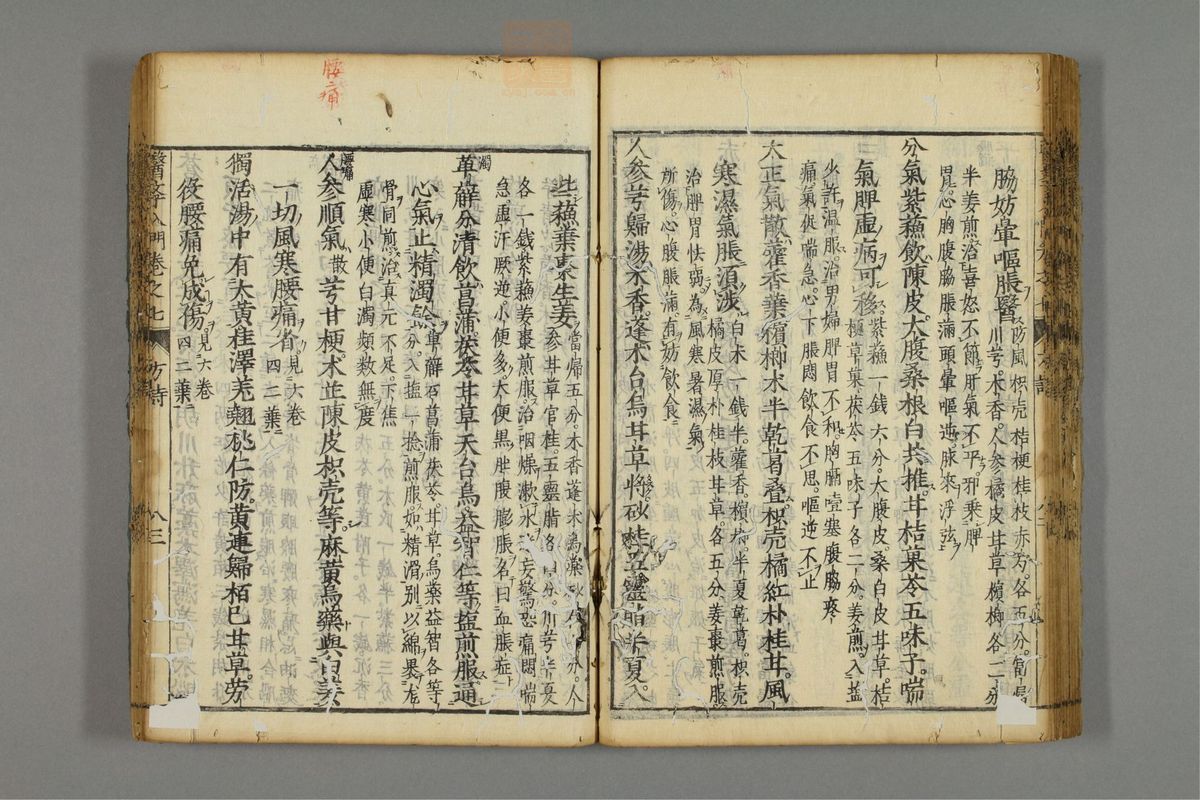 脇妨暈嘔脹醫
防風枳壳桔梗桂枝赤芍各五分
川芎木香人參橘皮甘草檳榔各二分
半姜煎治喜怒不節肝氣不平邪乘脾
胃心胸腹脇脹滿頭暈嘔逆脉來浮弦
分氣紫蘇飲陳皮大腹桑根白共推甘桔菓苓五味子喘
氣脾虛病可移
紫蘇一錢六分大腹皮桑白皮甘草桔
梗草菓茯苓五味子各二分姜煎入塩
少許温服治男婦脾胃不和胸膈噎塞腹脇疼
痛氣促喘急心下脹悶飲食不思嘔逆不止
大正氣散藿香葉檳榔朮半乾葛疊枳壳橘紅朴桂甘風
寒濕氣脹湏涉
白朮一錢半藿香檳榔半夏乾葛枳壳
橘皮厚朴桂枝甘草各五分姜棗煎服
治脾胃怯弱為風寒暑濕氣
所傷心腹脹滿有妨飲食
人參芎歸湯木香蓬朮台烏甘草將砂桂五靈脂半夏入
些蘇葉棗生姜
當歸五分木香蓬朮烏藥砂仁各分人
參甘草官桂五靈脂各四分川芎半夏
各一錢紫蘇姜棗煎服治咽燥漱水迷妄驚恐痛悶喘
急虛汗厥逆小便多大便黑肚腹膨脹名曰血脹症
濁
萆薢分清飲菖蒲茯苓甘草天台烏益智仁等塩煎服通
心氣止精濁餘
萆薢石菖蒲茯苓甘草烏藥益智各等
分入塩一捻煎服如精滑別以綿裹龙
骨同煎治真元不足下焦
虛寒小便白濁頻數無度
腰痛
人參順氣散芎甘梗朮芷陳皮枳壳等麻黃烏藥與白姜
一切風寒腰痛省
見六卷
四二葉
獨活湯中有大黃桂澤羌翹桃仁防黃連歸栢巳甘草勞
役腰痛免成傷
見六卷
四二葉
醫學入門卷之七
方詩
八三
腰痛